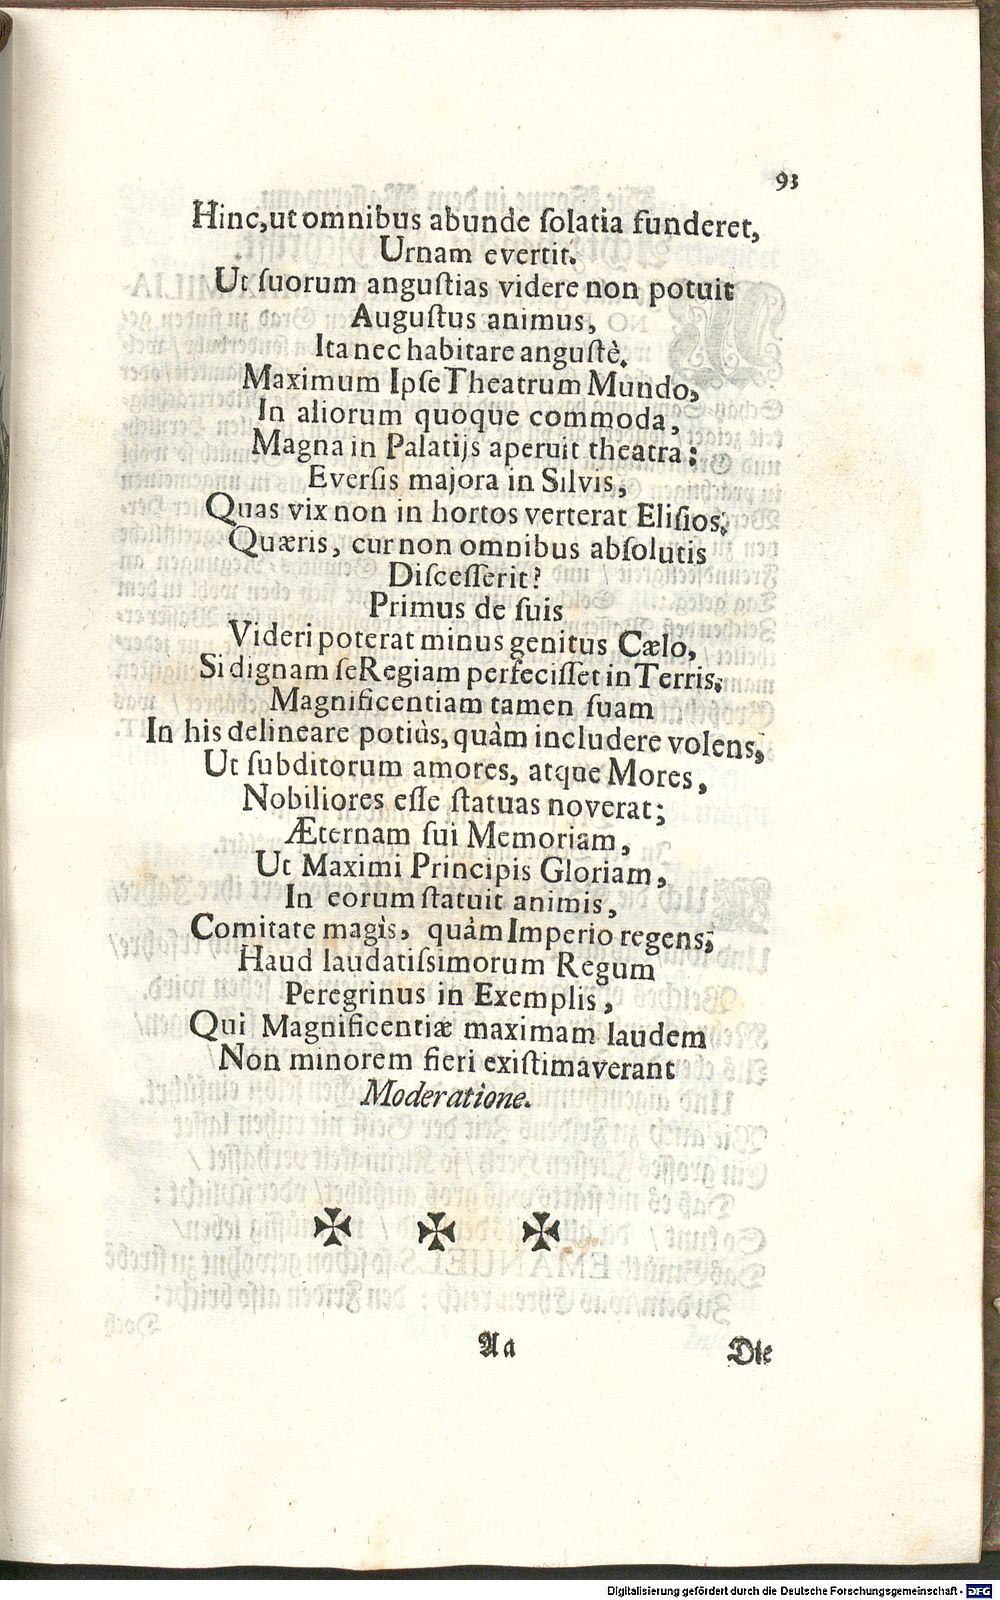 93
Hinc, ut omnibus abunde ſolatia funderet,
Urnam evertit.
Ut ſuorum anguſtias videre non potuit
Auguſtus animus,
Ita nec habitare anguſtè.
Maximum Ipſe Theatrum Mundo,
In aliorum quoque commoda,
Magna in Palatijs aperuit theatra:
Everſis majora in Silvis,
Quas vix non in hortos verterat Eliſios.
Quæris, cur non omnibus abſolutis
Diſceſſerit?
Primus de ſuis
Videri poterat minus genitus Cælo,
Si dignam ſe Regiam perfeciſſet in Terris;
Magnificentiam tamen ſuam
In his delineare potiùs, quàm includere volens,
Ut ſubditorum amores, atque Mores,
Nobiliores eſſe ſtatuas noverat;
Æternam ſui Memoriam,
Ut Maximi Principis Gloriam,
In eorum ſtatuit animis,
Comitate magìs, quàm Imperio regens;
Haud laudatiſsimorum Regum
Peregrinus in Exemplis,
Qui Magnificentiæ maximam laudem
Non minorem fieri exiſtimaverant
Moderatione.
Aa
Die
Digitalisierung gefördert durch die Deutsche Forschungsgemeinschaft - DFG